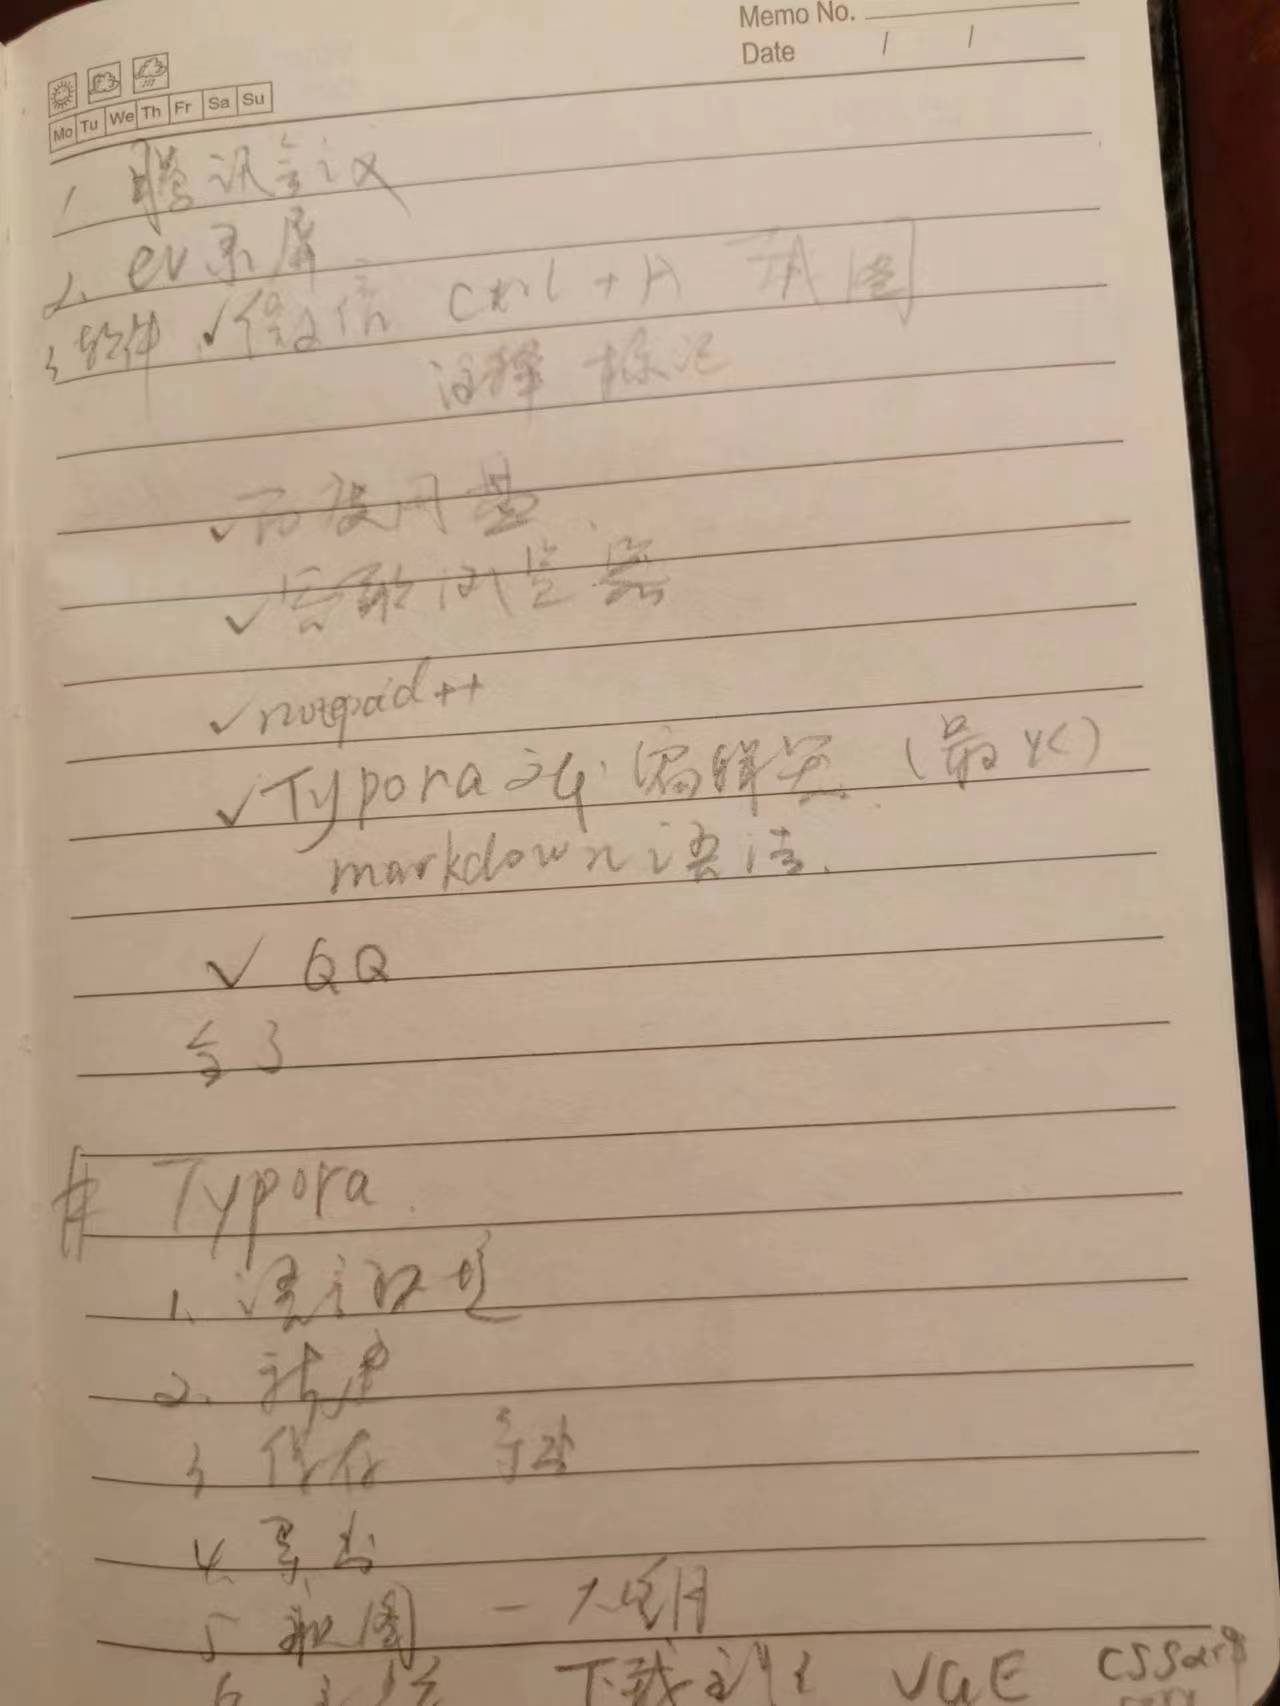 Memo No.
Date / /
Mo Tu We Th Fr Sa Su
1 腾讯会议
2. ev录屏
3 软件 ✓微信 Ctrl + A 截图
注释 标记
✓百度网盘
✓谷歌浏览器
✓notepad++
✓Typora 编辑器
markdown语法.
✓ QQ
# Typora
1. 语言设置
2.
3 保存
4. 导出
5 截图 -
6 下载